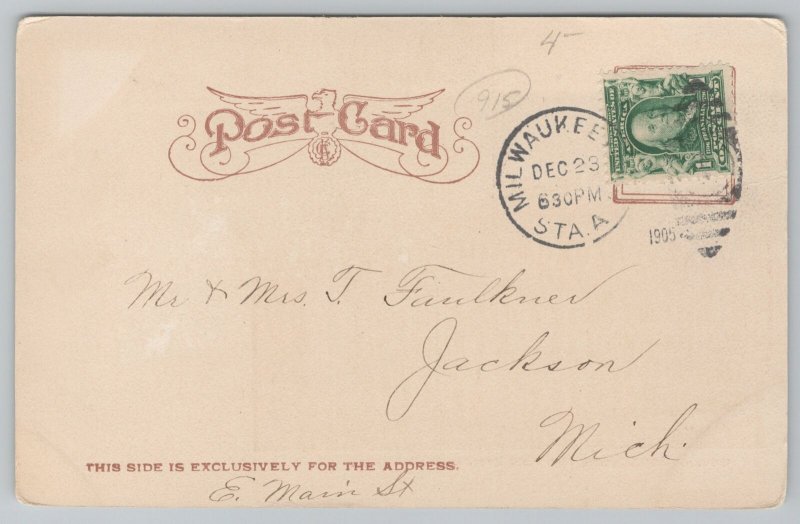 4-
915
Post Card
MILWAUKEE
DEC 23
630PM
STA. A
1905
1
Mr & Mrs. T. Faulkner
Jackson
Mich.
THIS SIDE IS EXCLUSIVELY FOR THE ADDRESS.
E. Main St